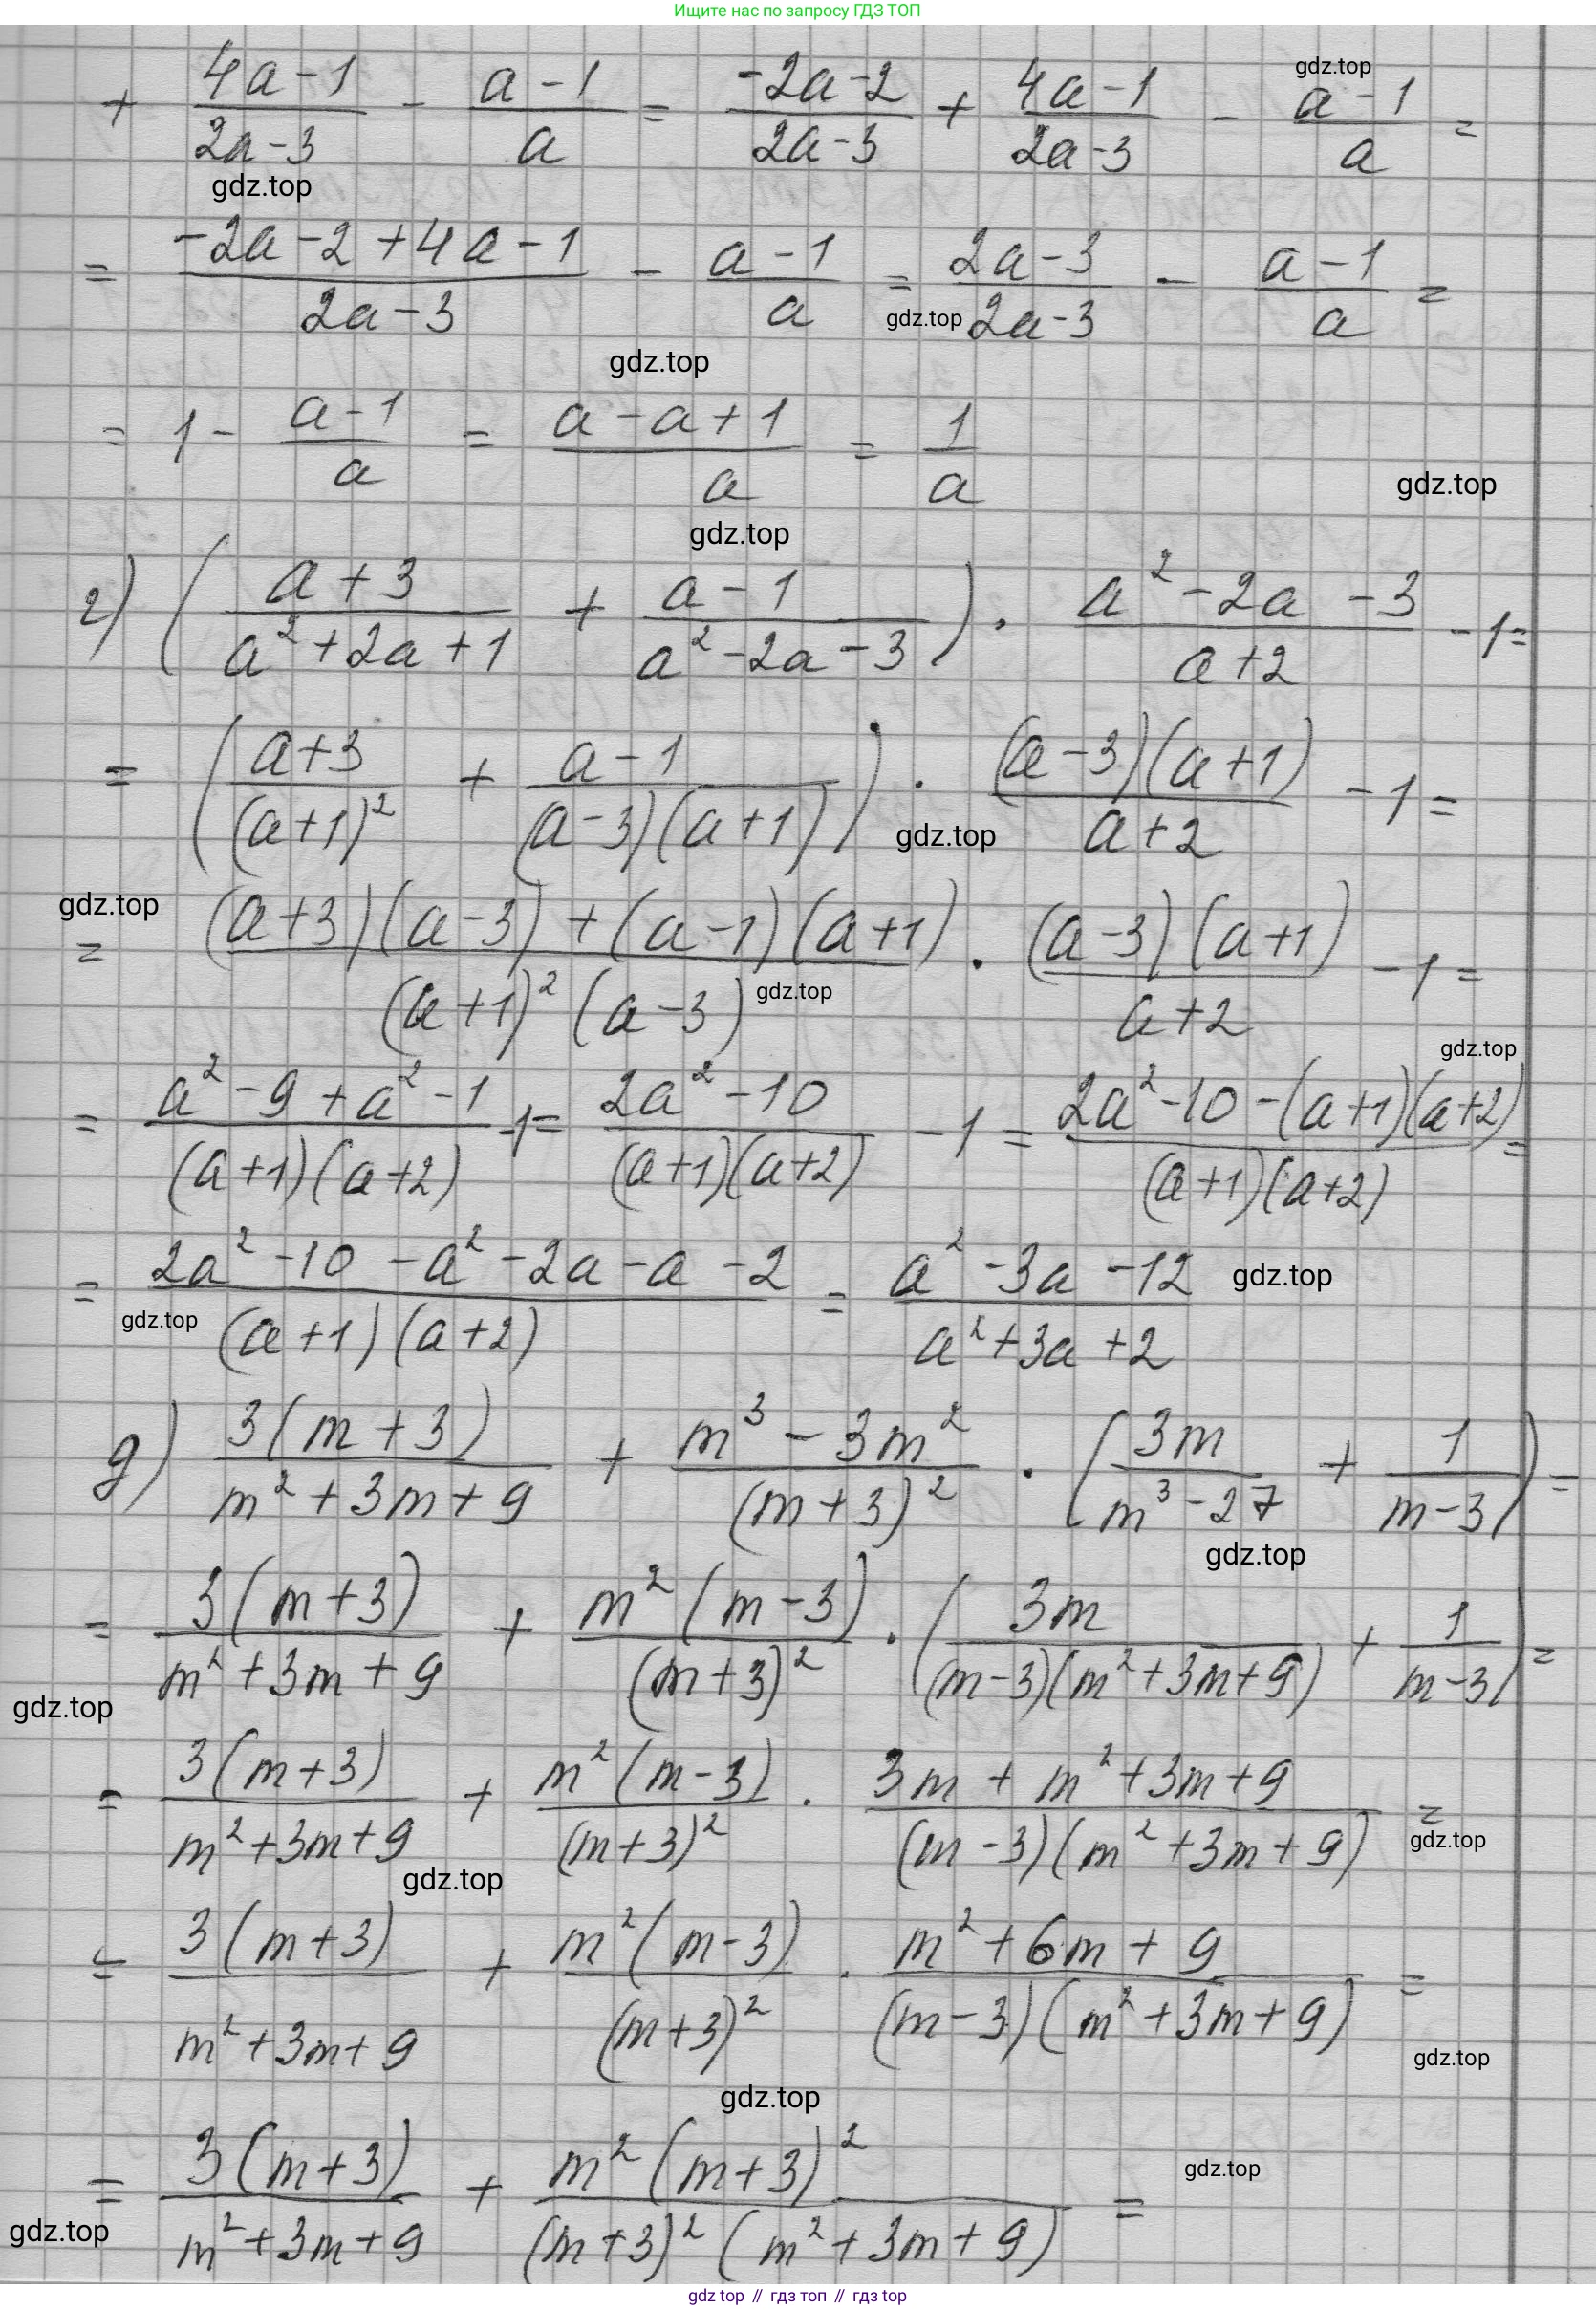 Ищите нас по запросу ГДЗ ТОП
+ (4a-1)/(2a-3) - (a-1)/a = (-2a-2)/(2a-3) + (4a-1)/(2a-3) - (a-1)/a =
gdz.top
gdz.top
= (-2a-2+4a-1)/(2a-3) - (a-1)/a = (2a-3)/(2a-3) - (a-1)/a =
gdz.top
gdz.top
= 1 - (a-1)/a = (a-a+1)/a = 1/a
gdz.top
gdz.top
г) ((a+3)/(a²+2a+1) + (a-1)/(a²-2a-3)) · (a²-2a-3)/(a+2) -1=
= ((a+3)/(a+1)² + (a-1)/((a-3)(a+1))) · ((a-3)(a+1))/(a+2) -1=
gdz.top
gdz.top
= ((a+3)(a-3)+(a-1)(a+1))/((a+1)²(a-3)) · ((a-3)(a+1))/(a+2) -1=
gdz.top
gdz.top
= (a²-9+a²-1)/((a+1)(a+2)) -1= (2a²-10)/((a+1)(a+2)) -1= (2a²-10-(a+1)(a+2))/((a+1)(a+2)) =
= (2a²-10-a²-2a-a-2)/((a+1)(a+2)) = (a²-3a-12)/(a²+3a+2)
gdz.top
gdz.top
д) (3(m+3))/(m²+3m+9) + (m³-3m²)/(m+3)² · (3m/(m³-27) + 1/(m-3)) =
gdz.top
= (3(m+3))/(m²+3m+9) + (m²(m-3))/(m+3)² · (3m/((m-3)(m²+3m+9)) + 1/(m-3)) =
gdz.top
= (3(m+3))/(m²+3m+9) + (m²(m-3))/(m+3)² · (3m+m²+3m+9)/((m-3)(m²+3m+9)) =
gdz.top
gdz.top
= (3(m+3))/(m²+3m+9) + (m²(m-3))/(m+3)² · (m²+6m+9)/((m-3)(m²+3m+9)) =
gdz.top
gdz.top
= (3(m+3))/(m²+3m+9) + (m²(m+3)²)/((m+3)²(m²+3m+9)) =
gdz.top
gdz.top
gdz top // гдз топ // гдз top